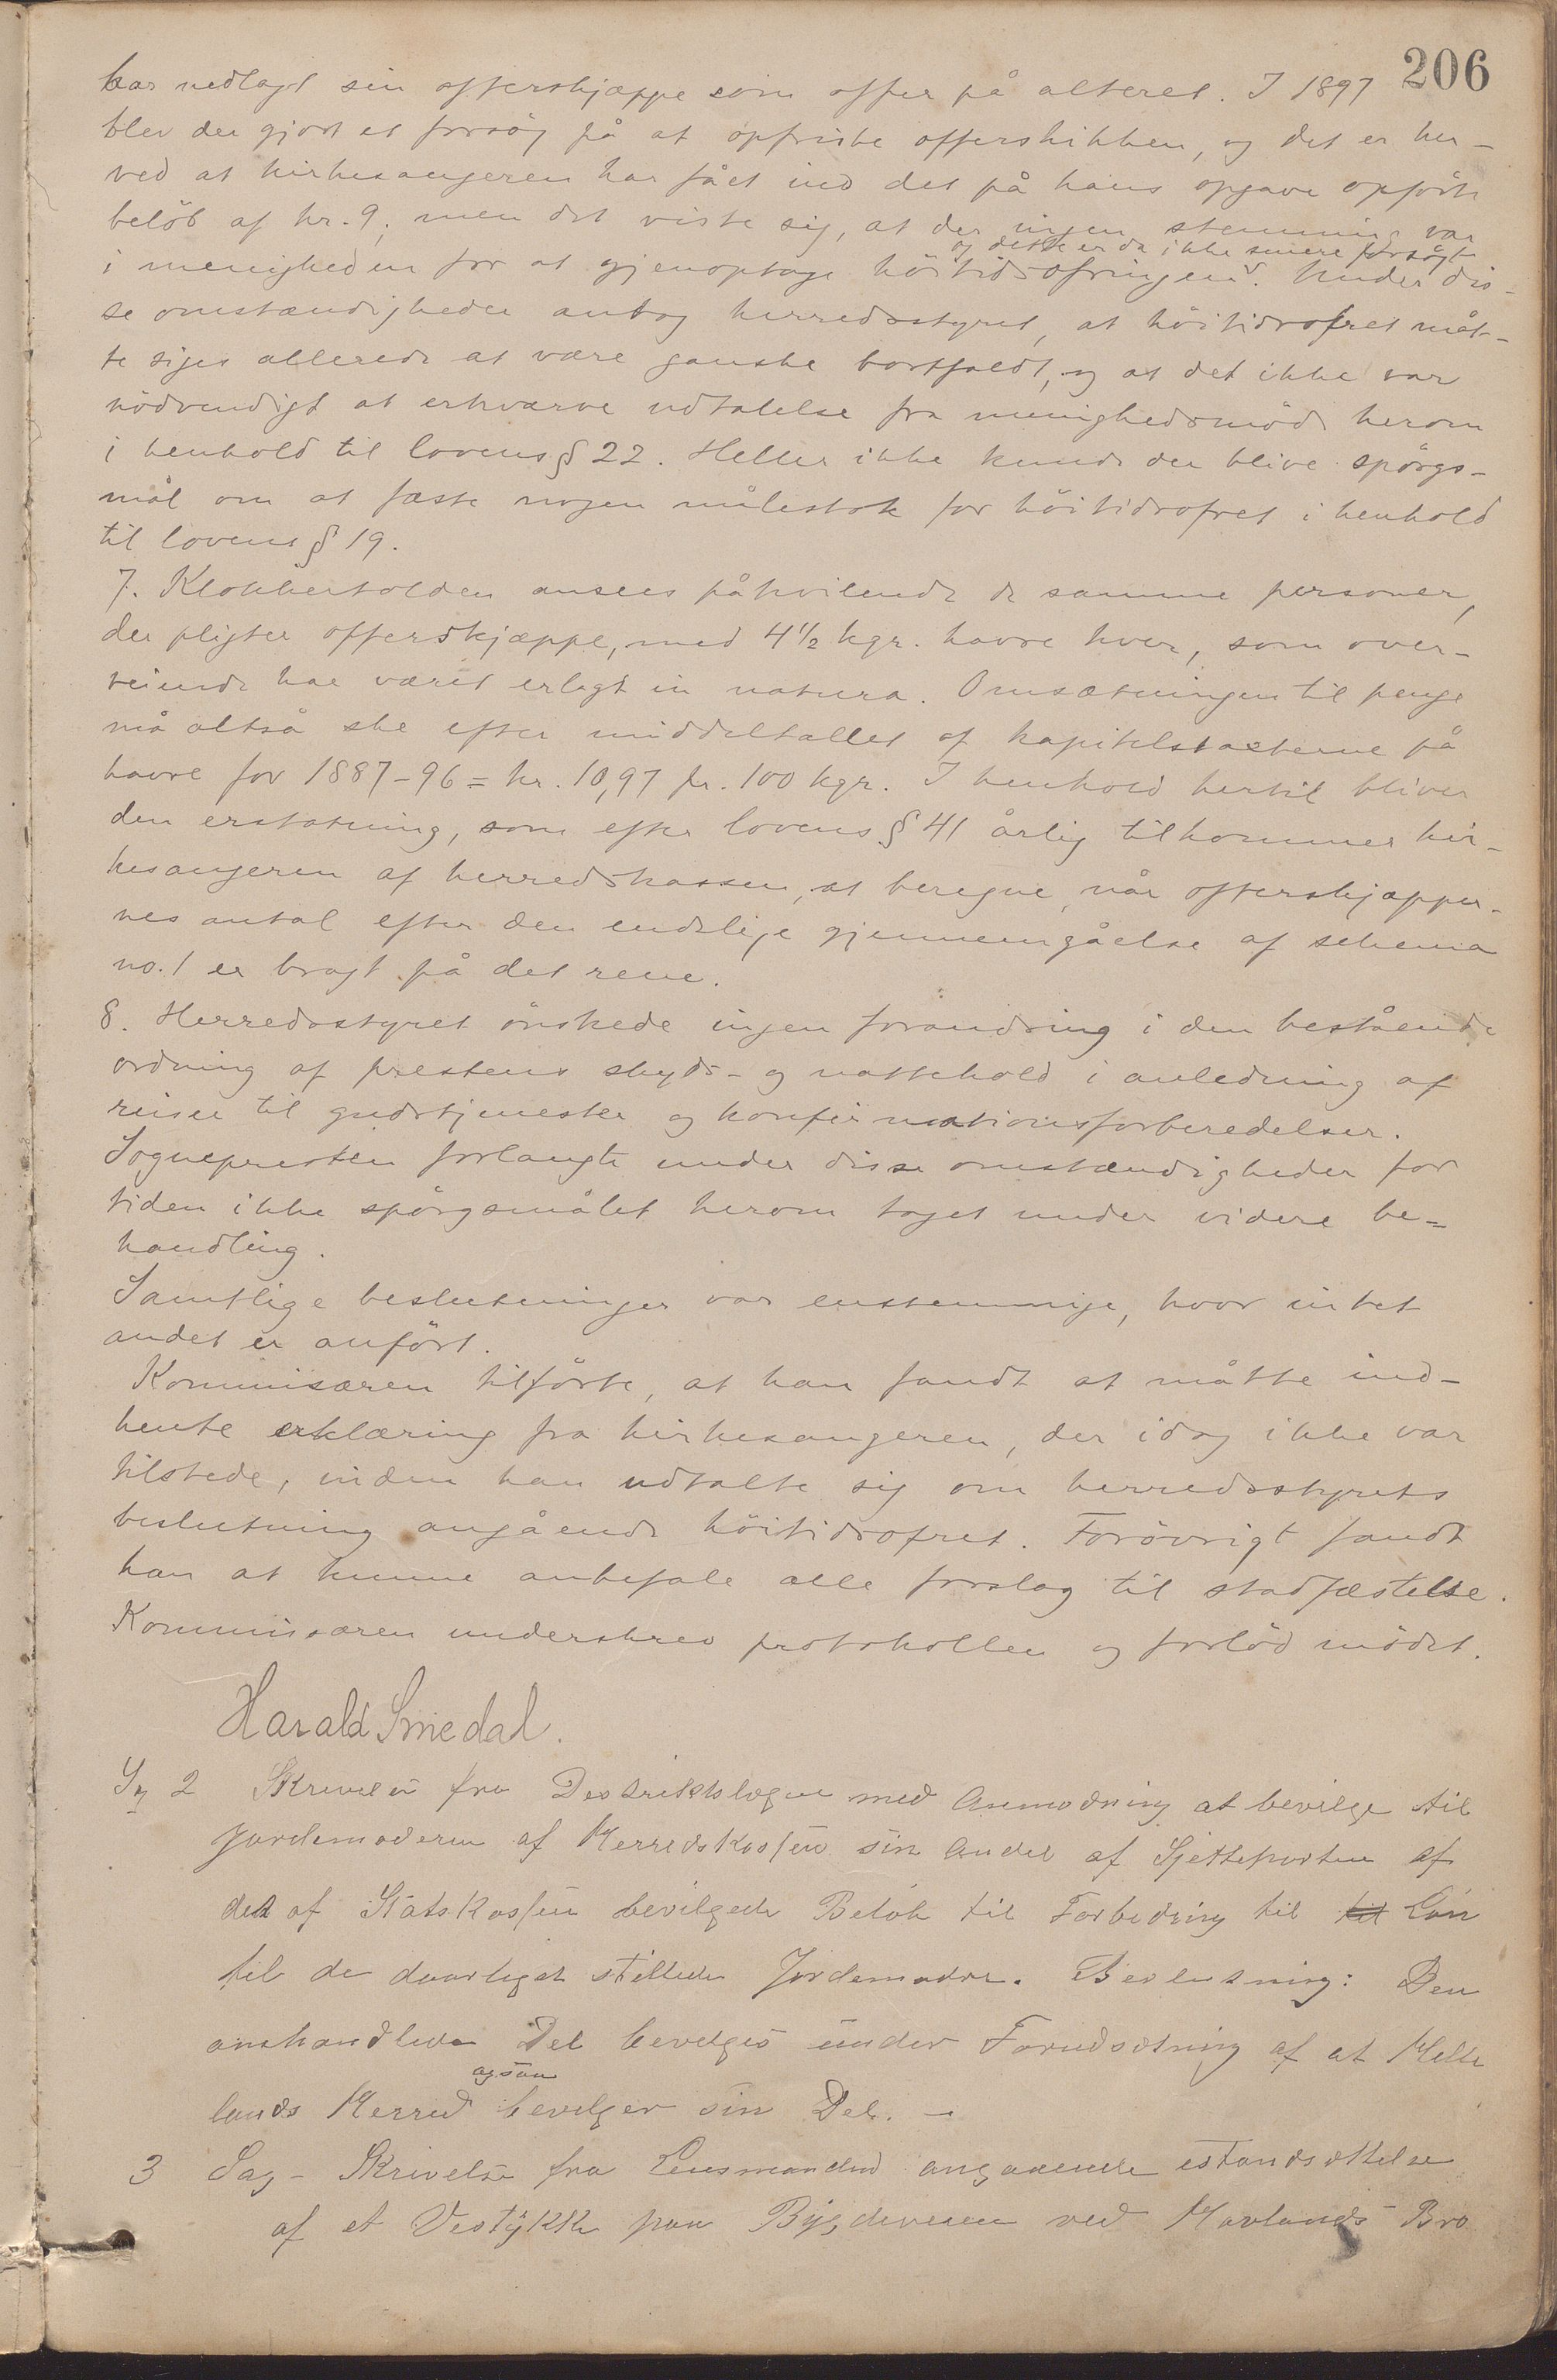 206
har nedlagt sin offerskjæppe som offer på alteret. I 1897
blev der gjort et forsøg på at opfriske offerskikken, og det er her-
ved at kirkesangeren har fået ind det på hans opgave opførte
beløb af kr. 9; men det viste sig, at der ingen stemning var
og dette er da ikke senere forsøgt
i menigheden for at gjenoptage höitidsofringen. Under dis-
se omstændigheder antog herredsstyret, at höitidsofret måt-
te siges allerede at være ganske bortfaldt, og at det ikke var
nödvendigt at erhverve udtalelse fra menighedsmöde herom
i henhold til lovens § 22. Heller ikke kunde der blive spörgs-
mål om at fæste nogen målestok for höitidsofret i henhold
til lovens § 19.
7. Klokkertolden ansees påhvilende de samme personer,
der pligter offerskjæppe, med 4 1/2 kgr. havre hver, som over-
veiende har været erlagt in natura. Omsætningen til penge
må altså ske efter middeltallet af kapitelstaksterne på
havre for 1887-96 = kr. 10,97 pr. 100 kgr. I henhold hertil bliver
den erstatning, som efter lovens § 41 årlig tilkommer kir-
kesangeren af herredskassen, at beregne, når offerskjæpper-
nes antal efter den endelige gjennemgåelse af schema
no. 1 er bragt på det rene.
8. Herredsstyret önskede ingen forandring i den bestående
ordning af prestens skyds- og nattehold i anledning af
reiser til gudstjenester og konfirmationsforberedelser.
Sognepresten forlangte under disse omstændigheder for
tiden ikke spörgsmålet herom taget under videre be-
handling.
Samtlige beslutninger var enstemmige, hvor intet
andet er anfört.
Kommisæren tilförte, at han fandt at måtte ind-
hente erklæring fra kirkesangeren, der idag ikke var
tilstede, inden han udtalte sig om herredsstyrets
beslutning angående höitidsofret. Forövrigt fandt
han at kunne anbefale alle forslag til stadfæstelse.
Kommissæren underskrev protokollen og forlod mödet.
Harald Smedal.
Sag 2 Skrivelse fra Destriktslægen med Anmodning at bevilge til
Jordemoderen af Herredskassen sin Andel af Sjetteparten af
det af Statskassen bevilgede Beløb til Forbedring til til Løn
til de daarligst stillede Jordemødre. Beslutning: Den
omhandlede Del bevilges under Forudsætning af at Helle
ogsaa
lands Herred bevilger sin Del. -
3 Sag - Skrivelse fra Lensmanden angaaende istandsættelse
af et Vestykke paa Bygdeveien ved Havlands Bro